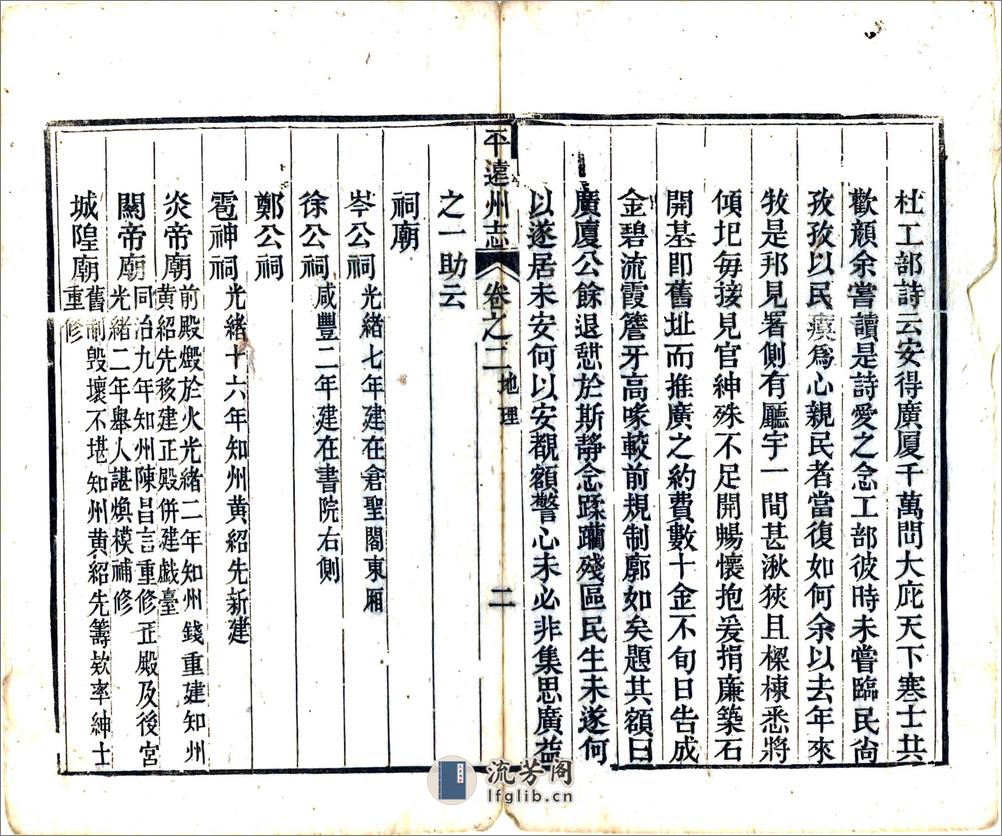 杜工部詩云安得廣厦千萬問大庇天下寒士共
歡顔余嘗讀是詩愛之念工部彼時未嘗臨民尙
孜孜以民瘼爲心親民者當復如何余以去年來
牧是邦見署側有廳宇一間甚湫狹且樑棟悉將
傾圯每接見官紳殊不足開暢懷抱爰捐廉築石
開基即舊址而推廣之約費數十金不旬日告成
金碧流霞簷牙高喙較前規制廓如矣題其額曰
廣厦公餘退憇於斯靜念蹂躪殘區民生未遂何
以遂居未安何以安覩額警心未必非集思廣益
平遠州志 卷之二 地理 二
之一助云
祠廟
岑公祠 光緒七年建在倉聖閣東厢
徐公祠 咸豐二年建在書院右側
鄭公祠
雹神祠 光緒十六年知州黄紹先新建
炎帝廟 前殿燬於火光緒二年知州錢重建知州
黄紹先移建正殿併建戲臺
關帝廟 同治九年知州陳昌言重修正殿及後宫
光緒二年舉人諶煥模補修
城隍廟 舊制毁壞不堪知州黄紹先籌欵率紳士
重修
流芳阁
lfglib.cn